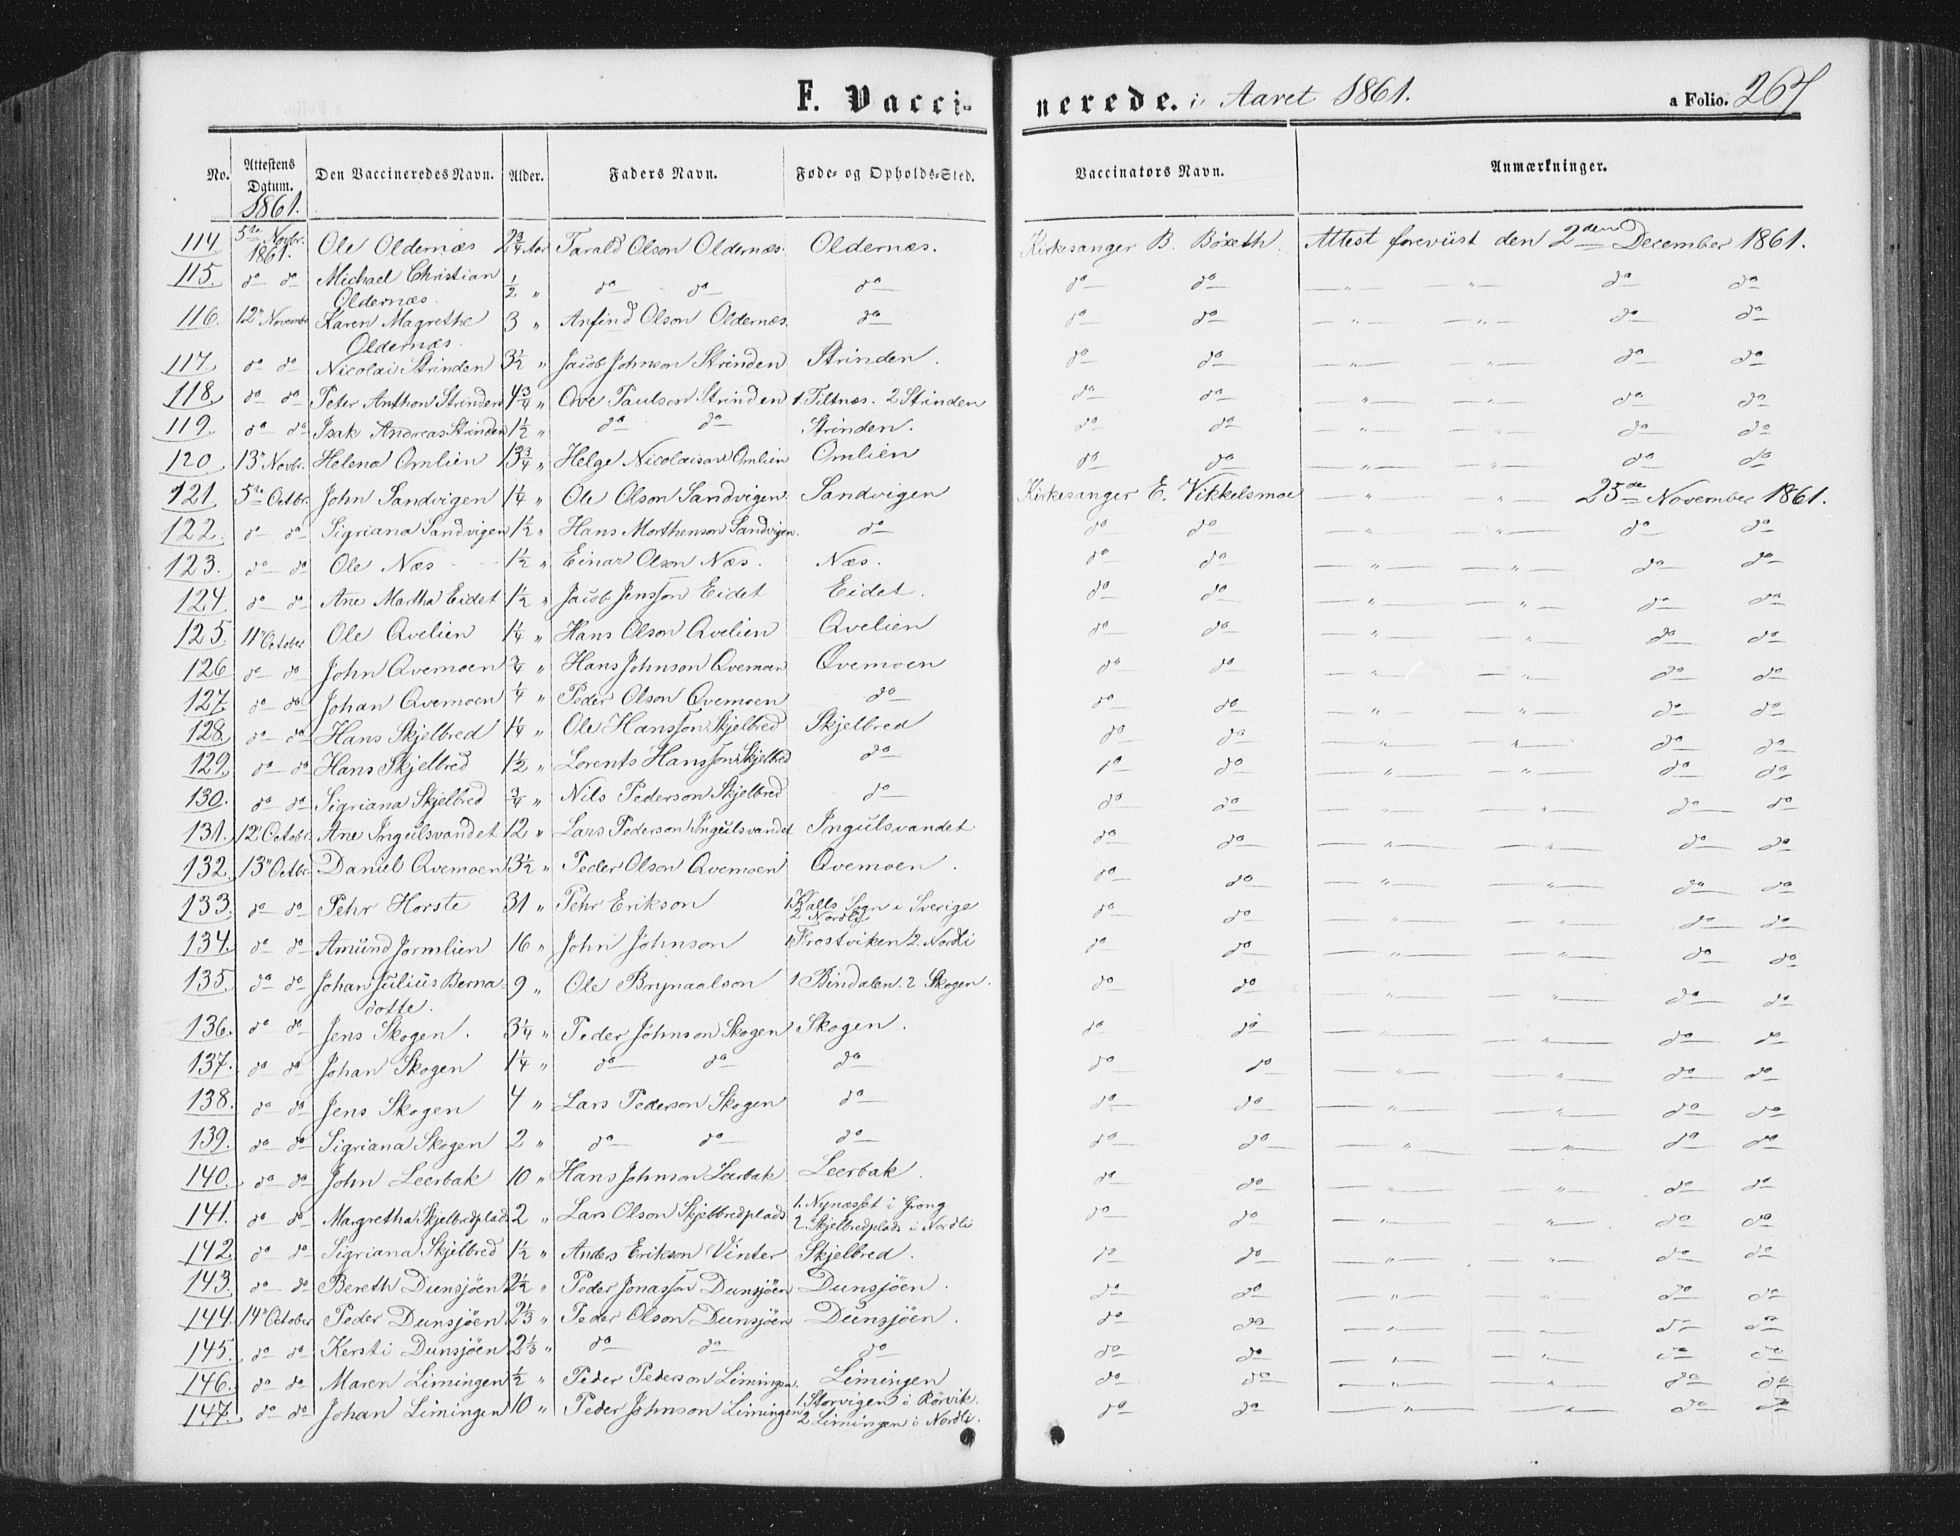 F. Vaccinerede. i Aaret 1861. a Folio. 264
No. | Attestens Datum. 1861. | Den Vaccineredes Navn. | Alder. | Faders Navn. | Føde- og Opholds-Sted. | Vaccinators Navn. | Anmærkninger.
114. 5te Novbr. 1861. Ole Oldernæs 2 3/4 Aar Tarald Olson Oldernæs. Oldernæs. Kirkesanger B. Böxeth. Attest foreviist den 2den December 1861.
115. do do Michael Christian Oldernæs. 1/2 " do do do do do — " — — " — do do
116. 12" Novembr Karen Magrethe Oldernæs. 3 " Anfind Olson Oldernæs. do do do — " — — " — do do
117. do do Nicolai Strinden 3 1/2 " Jacob Johnson Strinden Strinden. do do — " — — " — do do
118. do do Peter Anthon Strinden 4 3/4 " Ove Paulson Strinden 1. Tiltnæs. 2 Strinden do do — " — — " — do do
119. do do Isak Andreas Strinden 1 1/2 " do do Strinden. do do — " — — " — do do
120. 13" Novbr. Helena Omlien 13 3/4 " Helge Nicolaisen Omlien Omlien do do — " — — " — do do
121. 5te Octbr. John Sandvigen 1 1/4 " Ole Olson Sandvigen Sandvigen Kirkesanger E. Vikkelsmoe — " — — " — 25de November 1861.
122. do do Sigriana Sandvigen 1 1/2 " Hans Morthenson Sandvigen. do do do — " — — " — do do
123. do do Ole Næs 1 1/2 " Einar Olson Næs. Næs. do do — " — — " — do do
124. do do Ane Martha Eidet 1 1/2 " Jacob Jensson Eidet Eidet. do do — " — — " — do do
125. 11" October Ole Qvelien 1 1/4 " Hans Olson Qvelien Qvelien do do — " — — " — do do
126 do do John Qvemoen 3/4 " Hans Johnson Qvemoen Qvemoen do do — " — — " — do do
127. do do Johan Qvemoen 1/4 " Peder Olson Qvemoen do do do — " — — " — do do
128. do do Hans Skjelbred 1 1/4 " Ole Hansson Skjelbred Skjelbred do do — " — — " — do do
129. do do Hans Skjelbred 1 1/2 " Lorents Hansson Skjelbred do do do — " — — " — do do
130. do do Sigriana Skjelbred 3/4 " Nils Pederson Skjelbred do do do — " — — " — do do
131. 12" Octobr. Ane Ingulsvandet 12 " Lars Pederson Ingulsvandet Ingulsvandet do do — " — — " — do do
132. 13" Octbr. Daniel Qvemoen 13 1/2 " Peder Olson Qvemoen Qvemoen. do do — " — — " — do do
133. do do Pehr Horste 31 " Pehr Erikson 1. Kalls Sogn i Sverige 2 Nordli do do — " — — " — do do
134. do do Amund Jormlien 16 " John Johnson 1 Frostviken 2. Nordli do do — " — — " — do do
135. do do Johan Julius Bernadotte. 9 " Ole Brynaalson 1 Bindalen. 2 Skogen. do do — " — — " — do do
136. do do Jens Skogen. 3 1/4 " Peder Johnson Skogen Skogen. do do — " — — " — do do
137. do do Johan Skogen 1 1/4 " do do do do do — " — — " — do do
138. do do Jens Skogen 4 " Lars Pederson Skogen do do do — " — — " — do do
139. do do Sigriana Skogen 2 " do do do do do — " — — " — do do
140. do do John Leerbak 10 " Hans Johnson Leerbak Leerbak. do do — " — — " — do do
141. do do Margretha Skjelbredplads 2 " Lars Olson Skjelbredplads 1. Nynæsset i Grong 2 Skjelbredplads i Nordli do do — " — — " — do do
142. do do Sigriana Skjelbred 1 1/2 " Anders Erikson Vinter Skjelbred. do do — " — — " — do do
143. do do Bereth Dunsjöen 2 1/2 " Peder Jonasson Dunsjöen Dunsjöen. do do — " — — " — do do
144. 14" October Peder Dunsjöen 2 1/3 " Peder Olson Dunsjöen Dunsjöen. do do — " — — " — do do
145. do do Kersti Dunsjöen 2 1/3 " do do do do do — " — — " — do do
146. do do Maren Limingen 1/2 " Peder Pederson Limingen. Limingen do do — " — — " — do do
147. do do Johan Limingen 10 " Peder Johnson Limingen 1. Storvigen i Rörvik. 2 Limingen i Nordli. do do — " — — " — do do